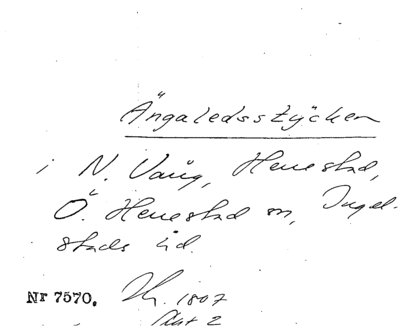 Ängaledsstycken
i N. Vång, Herrestad,
Ö. Herrestad sn, Ingel-
stads hd.
Nr 7570. Th. 1807
Akt 2